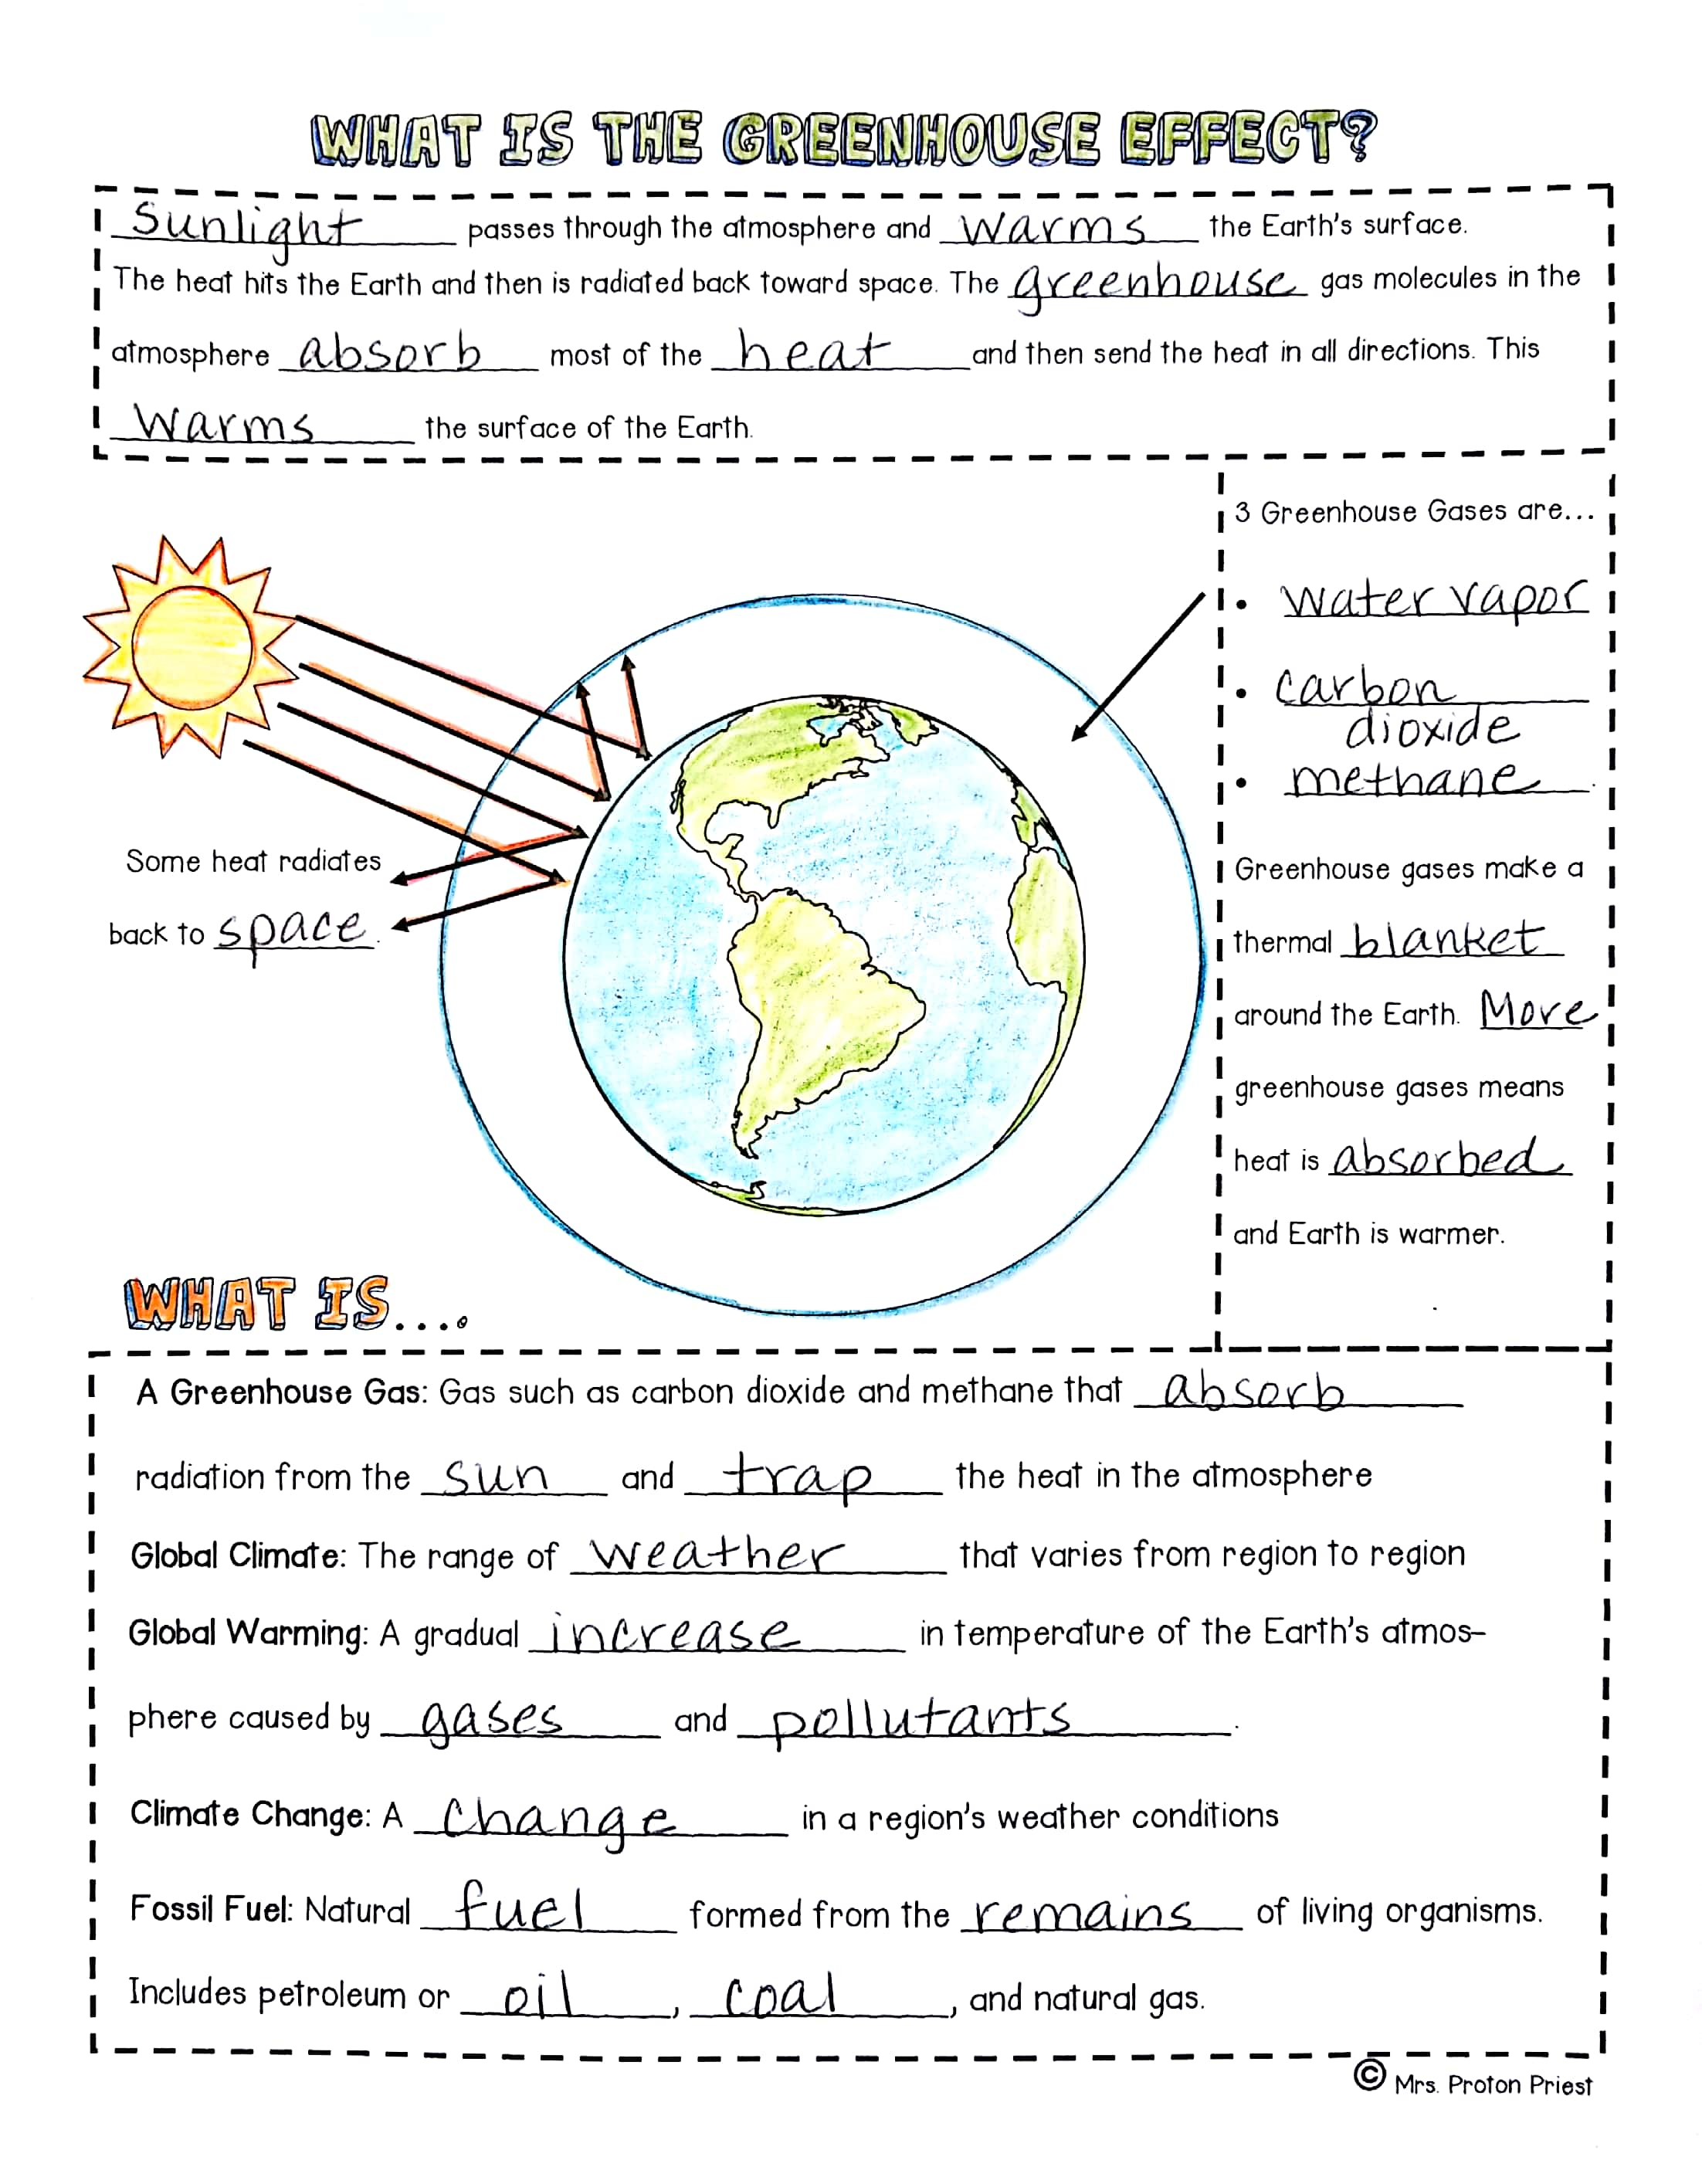 WHAT IS THE GREENHOUSE EFFECT?
Sunlight passes through the atmosphere and warms the Earth's surface.
The heat hits the Earth and then is radiated back toward space. The greenhouse gas molecules in the
atmosphere absorb most of the heat and then send the heat in all directions. This
warms the surface of the Earth.
3 Greenhouse Gases are...
• water vapor
• carbon
dioxide
• methane
Greenhouse gases make a
thermal blanket
around the Earth. More
greenhouse gases means
heat is absorbed
and Earth is warmer.
Some heat radiates
back to space.
WHAT IS....
A Greenhouse Gas: Gas such as carbon dioxide and methane that absorb
radiation from the sun and trap the heat in the atmosphere
Global Climate: The range of weather that varies from region to region
Global Warming: A gradual increase in temperature of the Earth's atmos-
phere caused by gases and pollutants.
Climate Change: A change in a region's weather conditions
Fossil Fuel: Natural fuel formed from the remains of living organisms.
Includes petroleum or oil, coal, and natural gas.
© Mrs. Proton Priest